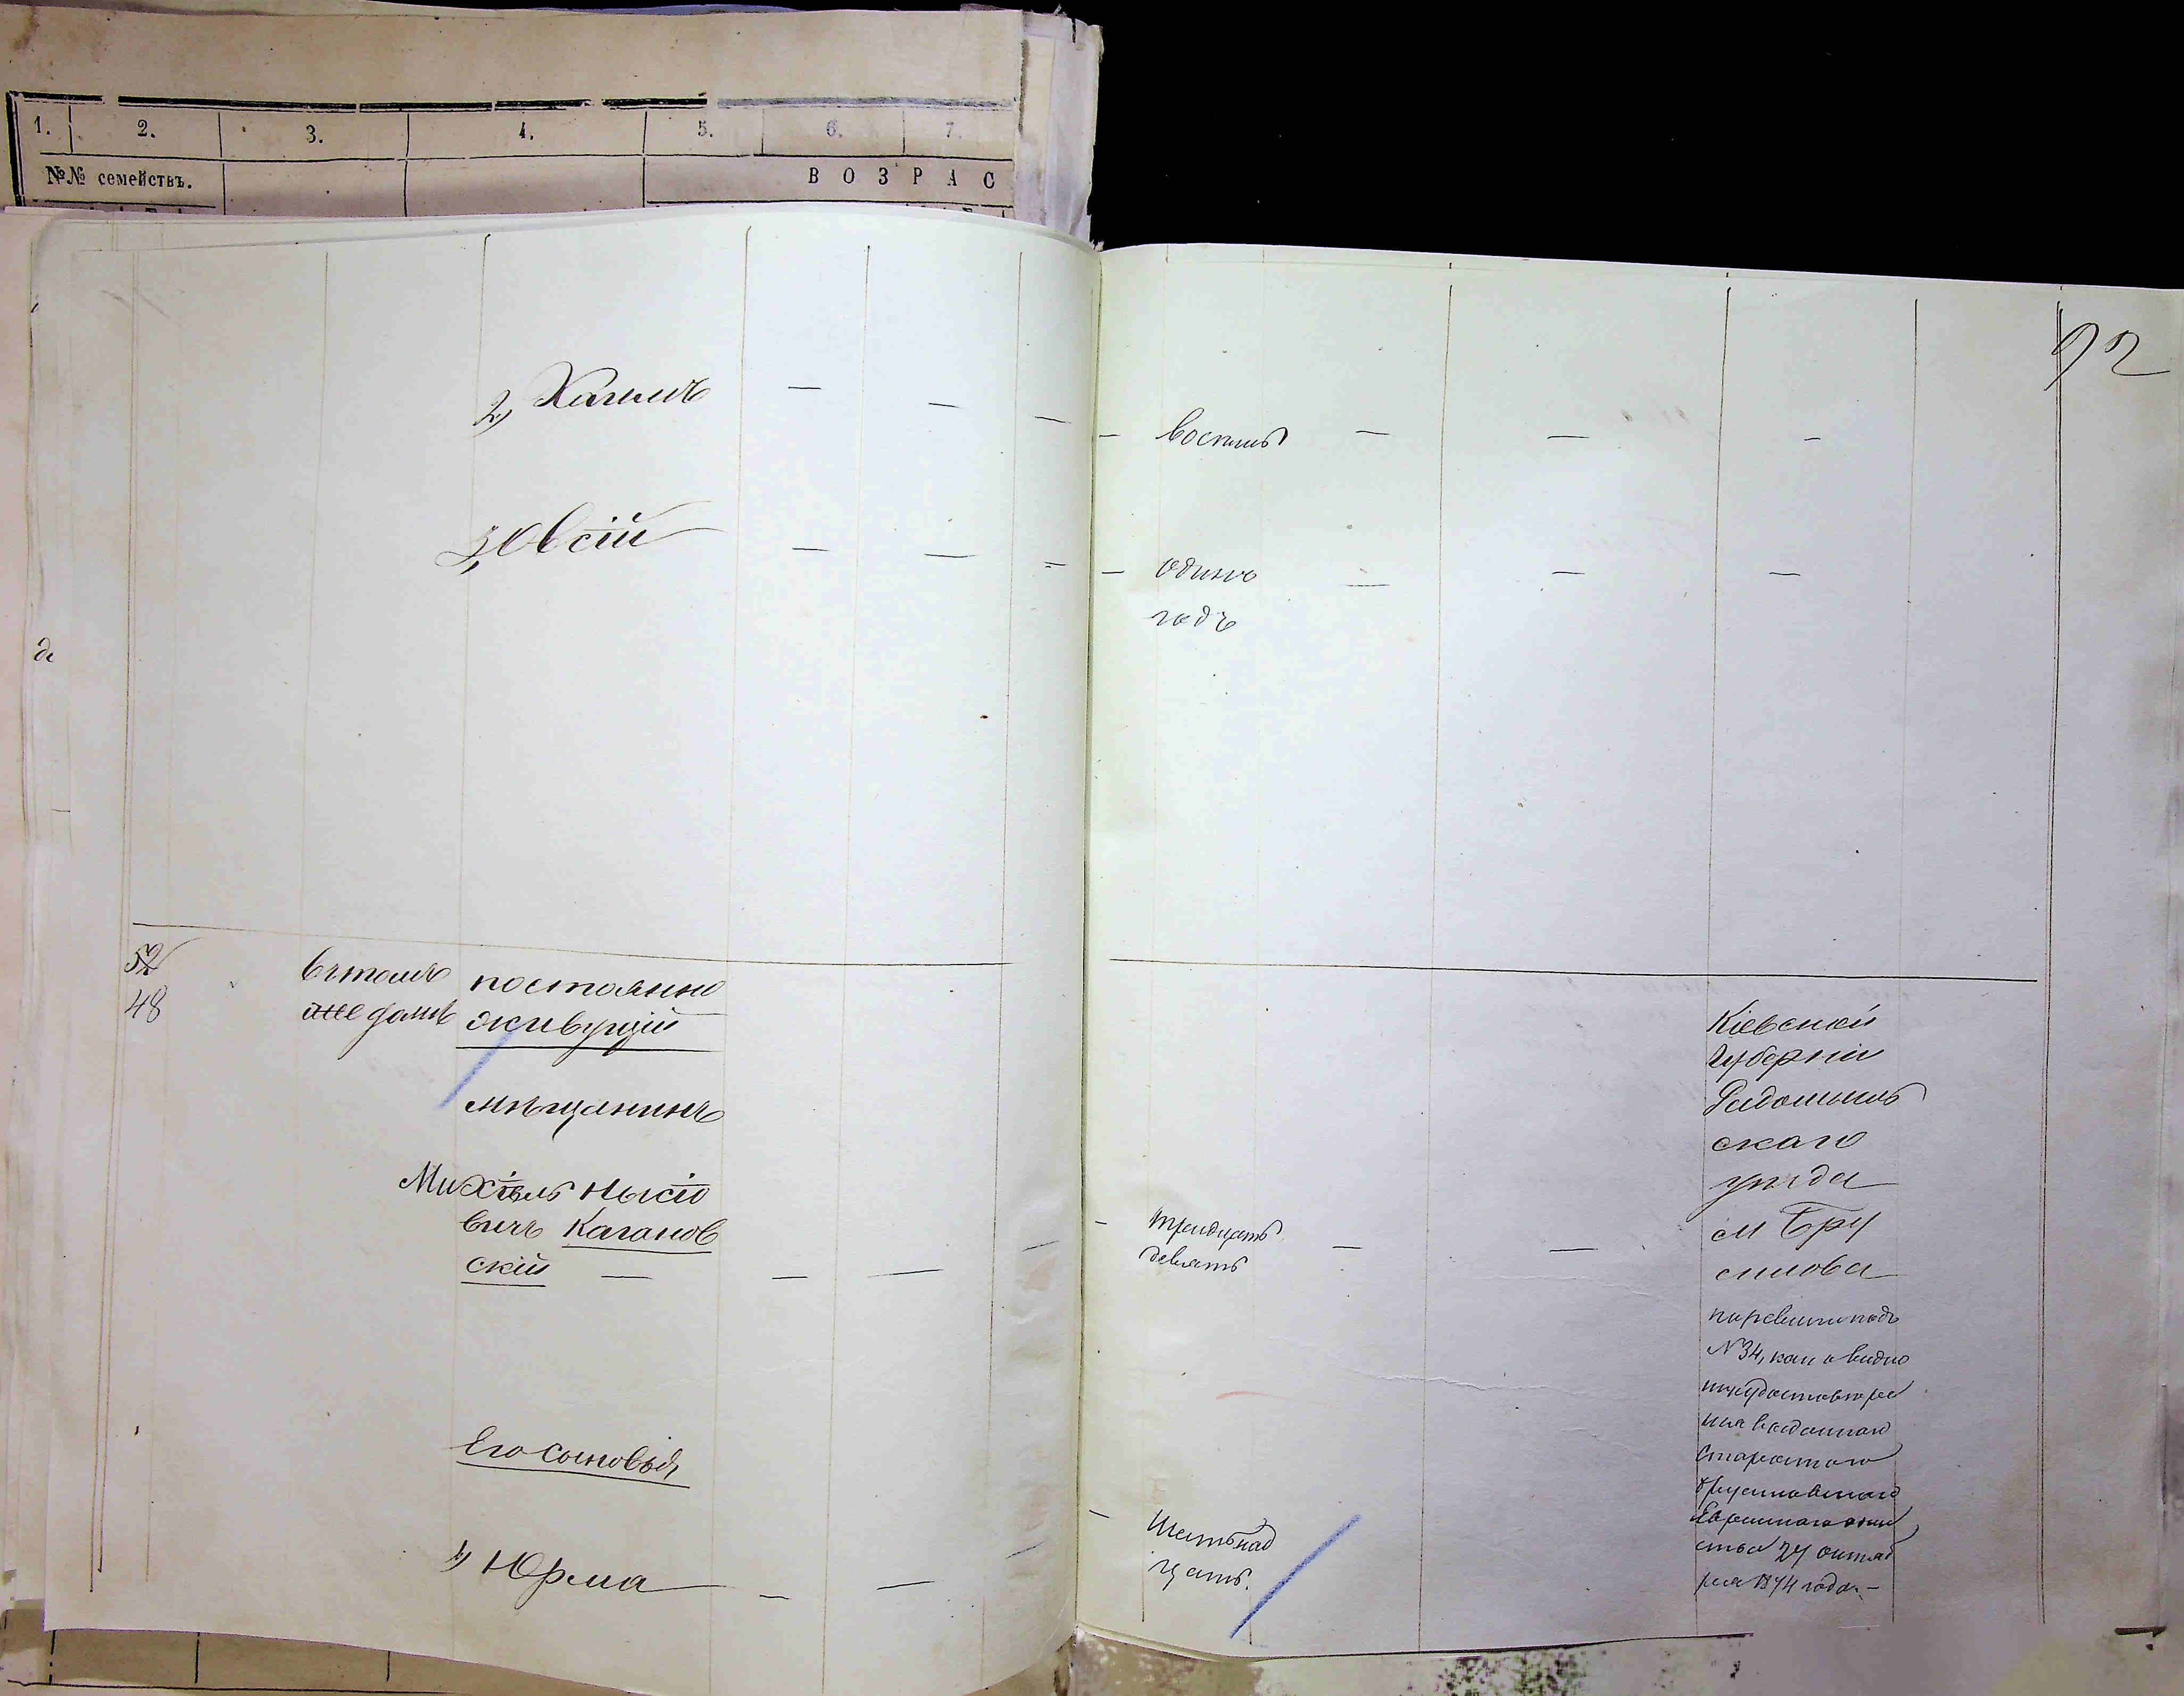 1. 2. 3. 4. 5. 6. 7.
№№ семействъ.
ВОЗРАС
92
2, Хаимъ — — —
— восемь — — —
3, Овсій — — —
— одинъ — — —
годъ
де
52
48
въ томъ
же домѣ
постоянно
живущій
мѣщанинъ
Михѣль Нысіо
вичъ Каганов
скій — — — —
- тридцать
девять — —
Кіевской
Губерніи
Радомысль
скаго
уѣзда
м Бру
силова
по ревизіи подъ
№ 34, какъ видно
изъ удостовѣре
нія выданнаго
Старостою
Брусиловскаго
Еврейскаго обще
ства 24 октяб
ря 1874 года. —
Его сыновья
1, Юрма — — —
- Шестьнад
цать.